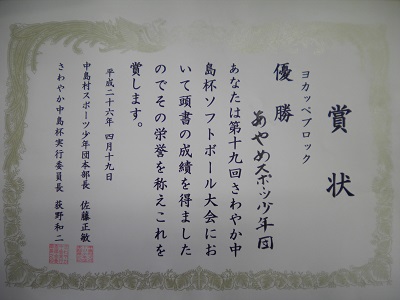 賞状
ヨカッペブロック
優勝
あやめスポーツ少年団
あなたは第十九回さわやか中
島杯ソフトボール大会にお
いて頭書の成績を得ました
のでその栄誉を称えこれを
賞します。
平成二十六年 四月十九日
中島村スポーツ少年団本部長 佐藤正敏
さわやか中島杯実行委員長 荻野和二